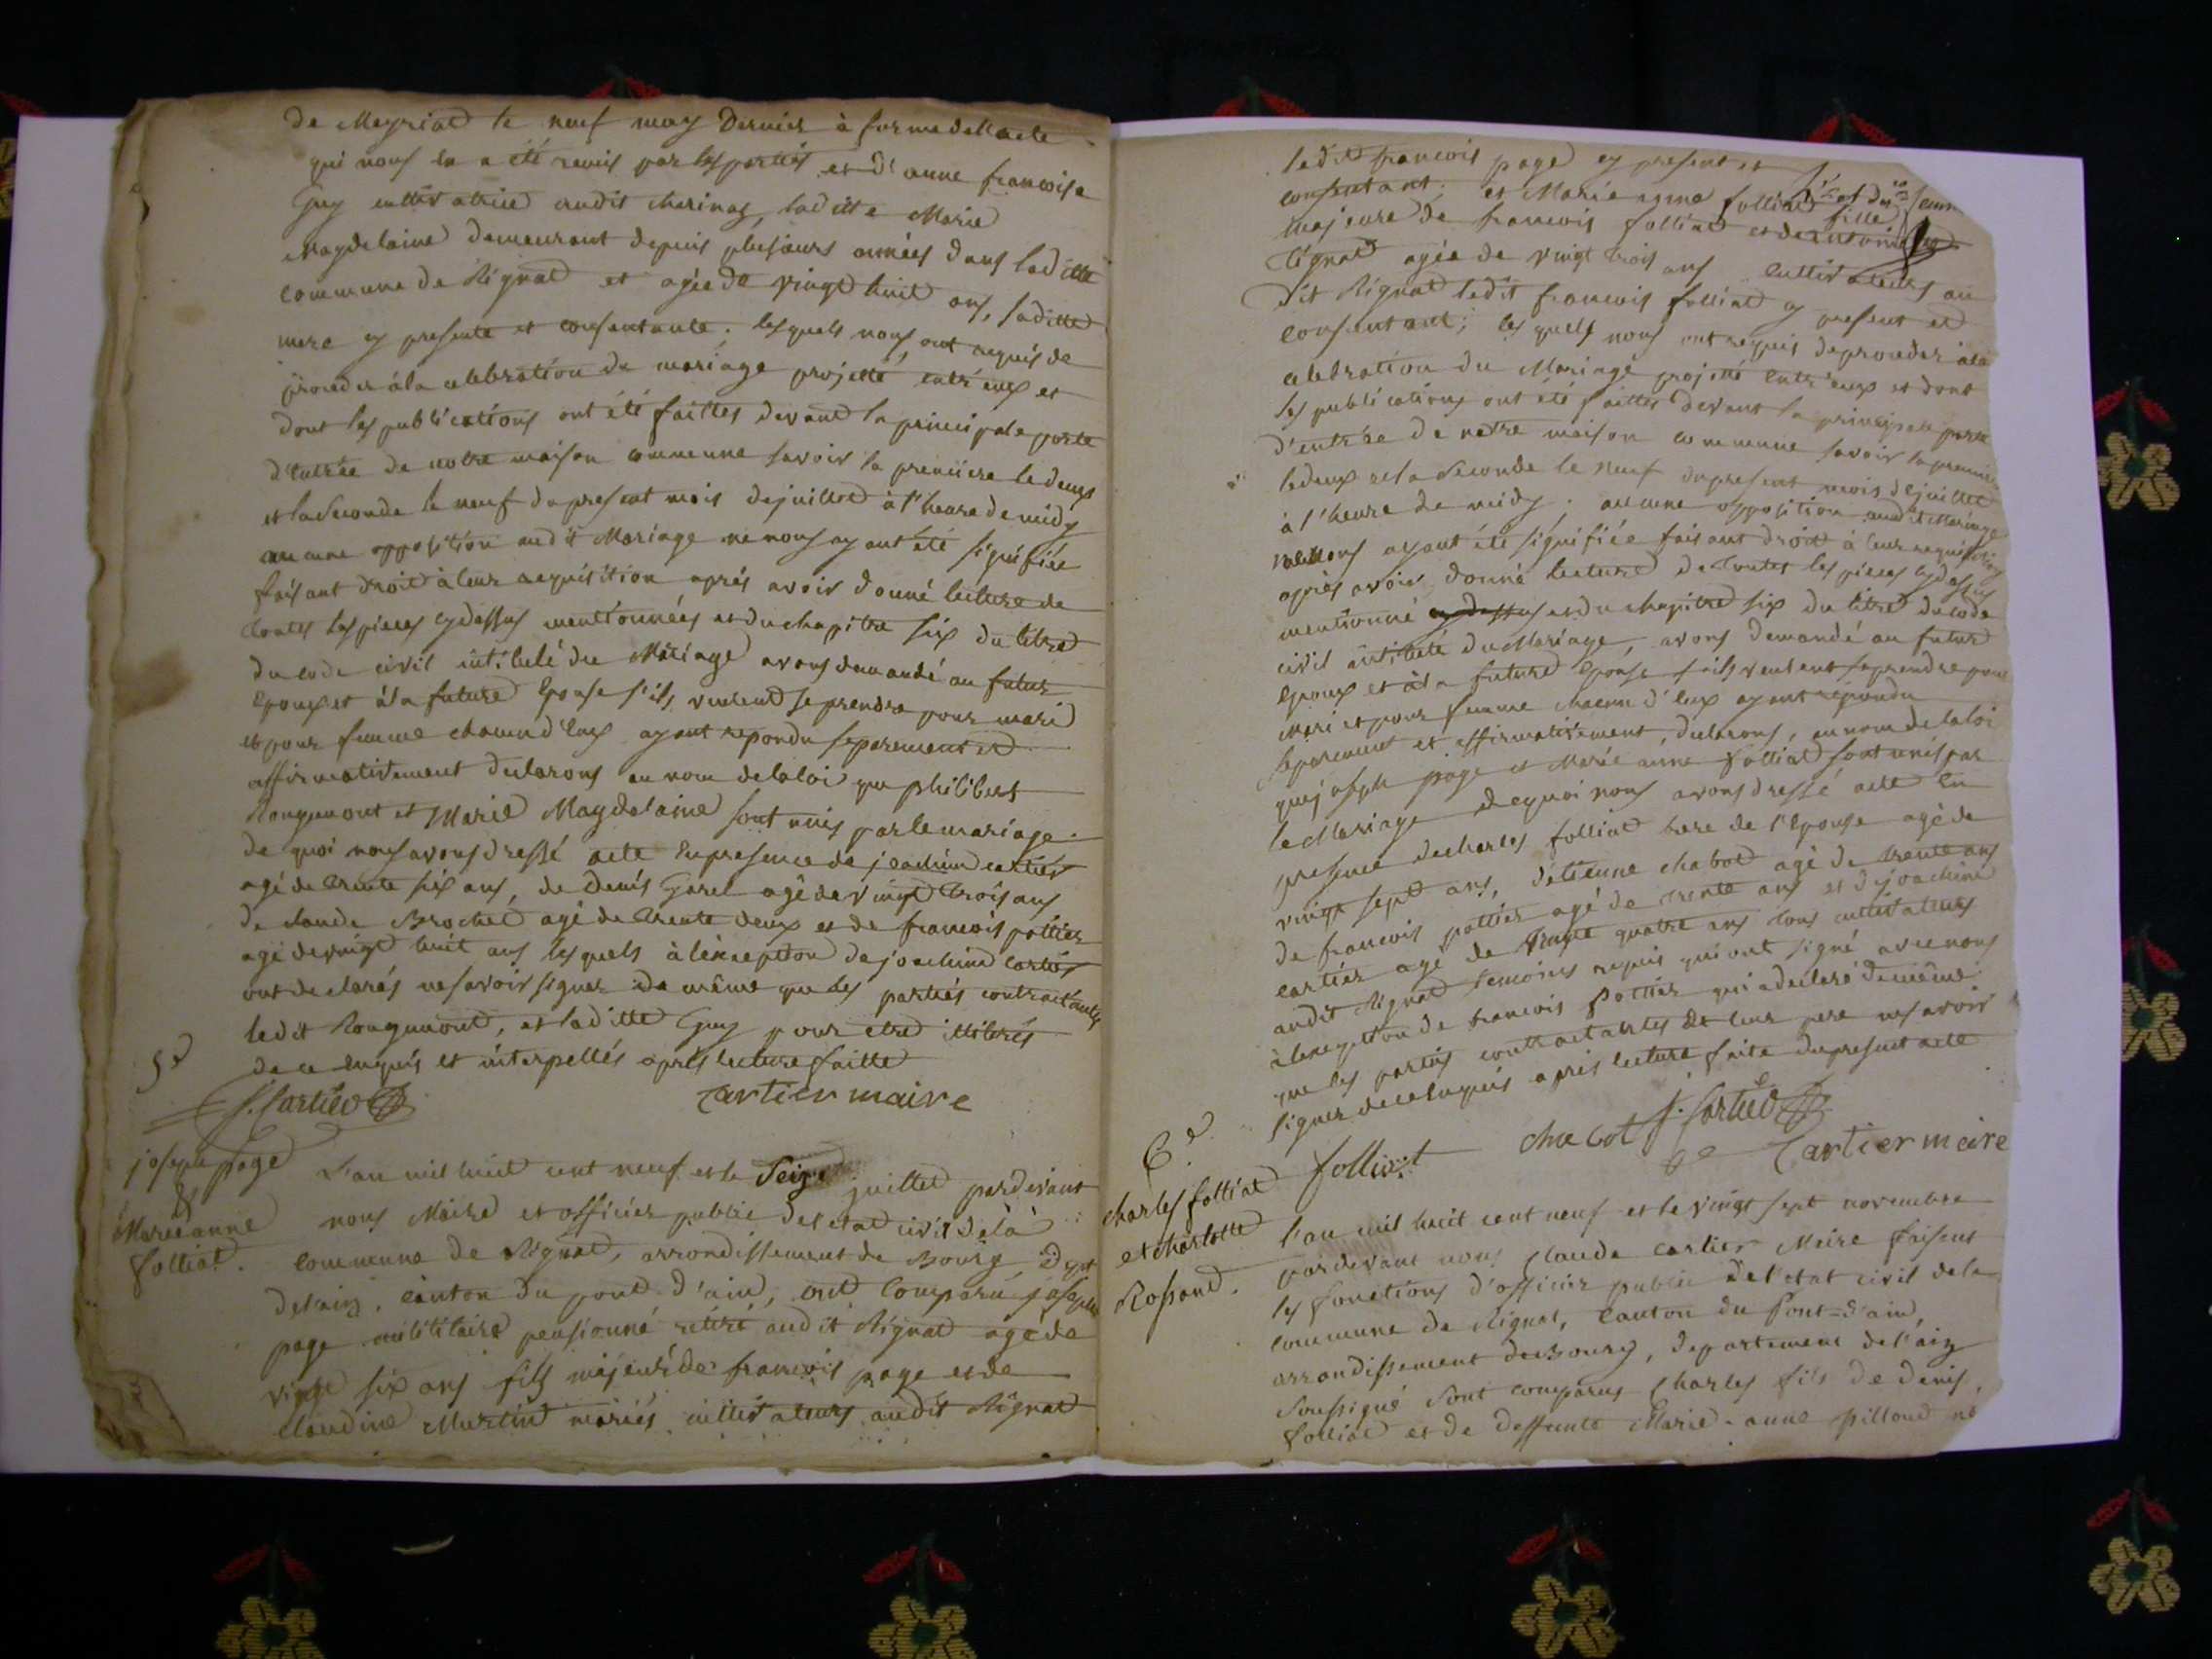 de Meyriat le neuf may Dernier à forme dellacte
qui nous la a été remis par les partiés et d'anne francoise
Guy cultivatrice audit cherinaz, laditte Marie
Magdelaine demeurant depuis plusieurs années dans laditte
commune de Rignat et agée de vingt huit ans, saditte
mere cy presente et consentante; lesquels nous ont requis de
proceder à la celebration de mariage projetté entr'eux et
dont les publications ont été faittes devant la principale porte
d'entrée de notre maison commune savoir la premiere le deux
et la seconde le neuf du present mois de juillet à l'heure de midy
aucune opposition audit Mariage ne nous ayant été signifiée
faisant droit à leur requisition aprés avoir donné lecture de
toutes les pieces cydessus mentionnées et du chapitre six du titre
du code civil intitulé du Mariage avons demandé au futur
Epoux et à la future Epouse s'ils veulent se prendre pour mari
et pour femme chacun d'eux ayant repondu separement et
affirmativement declarons au nom de la loi que philibert
Rougemont et Marie Magdelaine sont unis par le mariage.
de quoi nous avons dressé acte En presence de joachim cartier
agé de trente six ans, de Denis Garel agé de vingt trois ans
de claude Brochet agé de trente deux et de francois pottier
agé de vingt huit ans lesquels à l'exception de joachim cartier
ont declarés ne savoir signer de même que les partiés contractantes
ledit Rougemont, et laditte Guy pour etre illiterés
de ce enquis et interpellés aprés lecture faitte
J. Cartier
Cartier maire
5e
joseph page
&
Marie anne
folliat.
L'an mil huit cent neuf et le Seize juillet pardevant
nous Maire et officier public de l'etat civil de la
commune de Rignat, arrondissement de Bourg, Dept
de l'ain, canton du pont d'ain, ont comparu joseph
page militaire pensionné rétiré audit Rignat agé de
vingt six ans fils majeur de francois page et de
claudine Murtin mariés cultivateurs audit Rignat
ledit francois page cy present et
consentant; et Marie anne folliat fille
Majeure de francois folliat et de antoinette
tignat agée de vingt trois ans cultivateurs au
dit Rignat ledit francois folliat cy present et
consentant; les quels nous ont requis de proceder à la
celebration du Mariage projetté entr'eux et dont
les publications ont été faittes devant la principale porte
d'entrée de notre maison commune savoir la premiere
le deux et la seconde le neuf du present mois de juillet
à l'heure de midy; aucune opposition audit Mariage
ne nous ayant été signifiée faisant droit à leur requisition
aprés avoir donné lecture de toutes les pieces cydessus
mentionné cy dessus et du chapitre six du titre du code
civil intitulé du Mariage, avons demandé au futur
epoux et à la future Epouse s'ils veulent se prendre pour
mari et pour femme chacun d'eux ayant répondu
separement et affirmativement, declarons, au nom de la loi
que joseph page et Marie anne folliat sont unis par
le Mariage de quoi nous avons dressé acte En
presence de charles folliat frere de l'Epouse agé de
vingt sept ans, d'etienne chabot agé de trente ans
de francois pottier agé de trente ans et de joachim
cartier agé de trente quatre ans tous cultivateurs
audit Rignat temoins requis qui ont signé avec nous
à l'exception de francois Pottier qui a declaré de même
que les partiés contractantes et leur pere ne savoir
signer de ce enquis aprés lecture faite du present acte
folliat chabot J. Cartier
Cartier maire
6e
charles folliat
et charlotte
Rossand.
L'an mil huit cent neuf et le vingt sept novembre
pardevant nous Claude Cartier Maire faisant
les fonctions d'officier public de l'etat civil de la
commune de Rignat, Canton du Pont-d'ain,
arrondissement de Bourg, departement de l'ain
soussigné sont comparus Charles fils de denis
folliat et de deffunte Marie-anne pilloud né